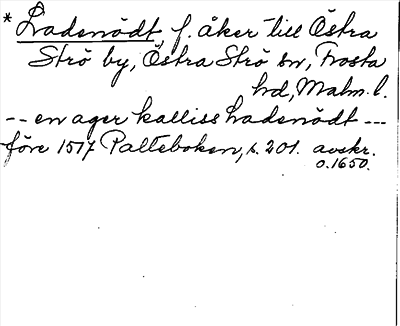 * Ladsnödt, f. åker till Östra
Strö by, Östra Strö sn, Frosta
hd, Malm. l.
-- en ager kalliss Ladsnödt ---
före 1517 Palteboken, s. 201. avskr.
o. 1650.